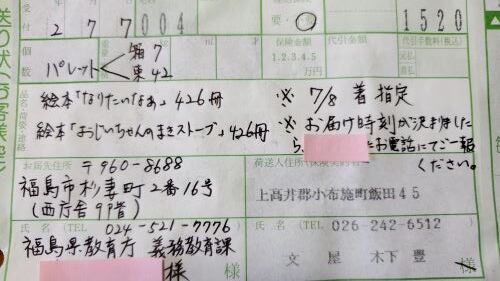 送り状（お客様控
受付
2 7 7
004
要・
1520
個数
パレット 箱7 束42
保険金額
1.2.3.4.5
万円
代引金額
代引手数料(税込)
品名(荷姿・連絡)
絵本「なりたいなあ」426冊
絵本「ようじいちゃんのまきストーブ」426冊
※ 7/8 着指定
※ お届け時刻が決まりました
ら、
にお電話にてご一報
ください。
お届先住所
〒960-8688
福島市杉妻町2番16号
(西庁舎9階)
荷送人住所
上高井郡小布施町飯田45
氏名 (TEL 024-521-7776
福島県教育庁 義務教育課
様
氏名 (TEL) 026-242-6512
文屋 木下 豊
様